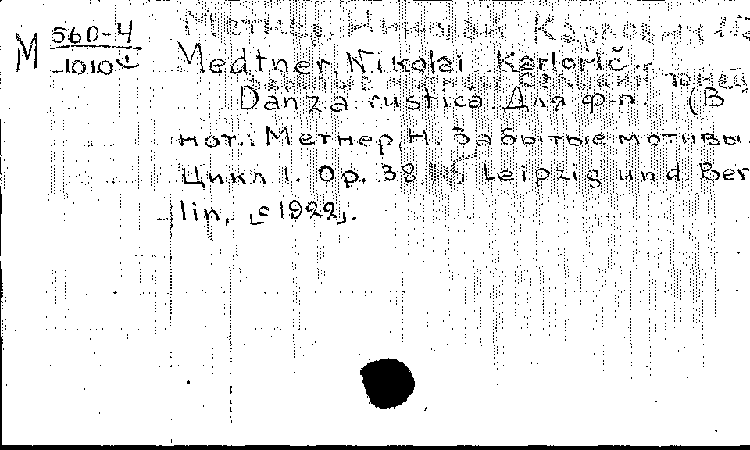 Метнер Николай Карлович
М 560-4
1010
Medtner Nikolai Karlovič.
Danza rustica. Для ф-п. (В
нот.: Метнер, Н. Забытые мотивы.
Цикл 1. Op. 38. Leipzig und Ber
lin, [c 1922].